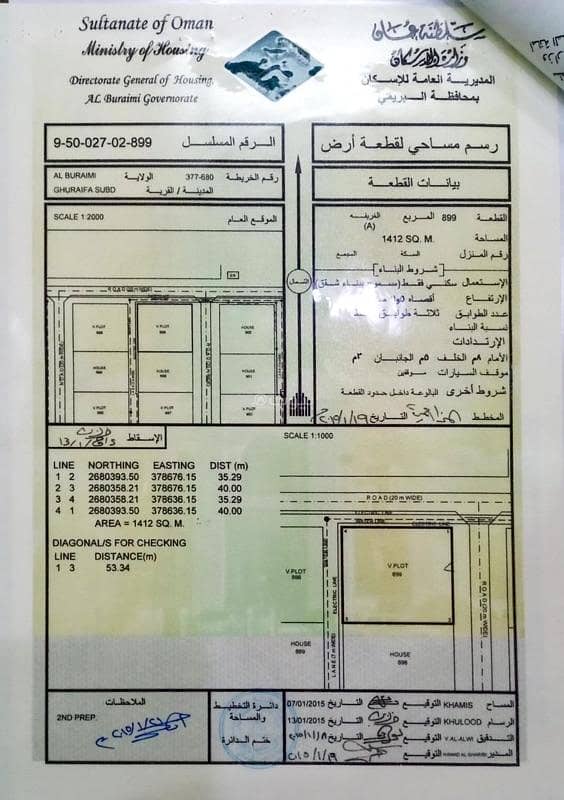 Sultanate of Oman
Ministry of Housing
Directorate General of Housing.
AL Buraimi Governorate
سلطنة عمان
وزارة الإسكان
المديرية العامة للإسكان
بمحافظة البريمي
رسم مساحي لقطعة أرض
الرقم المسلسل 9-50-027-02-899
بيانات القطعة
رقم الخريطة 377-680 الولاية AL BURAIMI
المدينة / القرية GHURAIFA SUBD
القطعة 899 المربع الغريفه
(A)
المساحة 1412 SQ. M.
رقم المنزل السكة المجمع
[شروط البناء]
الإستعمال سكني فقط
الإرتفاع أقصاه
عدد الطوابق ثلاثة طوابق فقط
نسبة البناء
الإرتدادات
الأمام ٥م الخلف ٥م الجانبان ٣م
موقف السيارات موقفين
شروط أخرى البالوعة داخل حدود القطعة
المخطط التاريخ
SCALE 1:2000 الموقع العام
ROAD (20 m WIDE)
V.PLOT
V.PLOT
899
HOUSE
الشمال
الإسقاط
LINE NORTHING EASTING DIST (m)
1 2 2680393.50 378676.15 35.29
2 3 2680358.21 378676.15 40.00
3 4 2680358.21 378636.15 35.29
4 1 2680393.50 378636.15 40.00
AREA = 1412 SQ. M.
DIAGONAL/S FOR CHECKING
LINE DISTANCE(m)
1 3 53.34
SCALE 1:1000
ROAD (20 m WIDE)
ELECTRIC LINE
WATER LINE
WATER LINE
ELECTRIC LINE
LANE (7 m WIDE)
ROAD (20 m WIDE)
V.PLOT
V.PLOT
899
HOUSE
HOUSE
898
الملاحظات
2ND PREP.
دائرة التخطيط
والمساحة
ختم الدائرة
المساح KHAMIS التوقيع التاريخ 07/01/2015
الرسام KHULOOD التوقيع التاريخ 13/01/2015
التدقيق Y.AL-ALWI التوقيع التاريخ
المدير التوقيع التاريخ